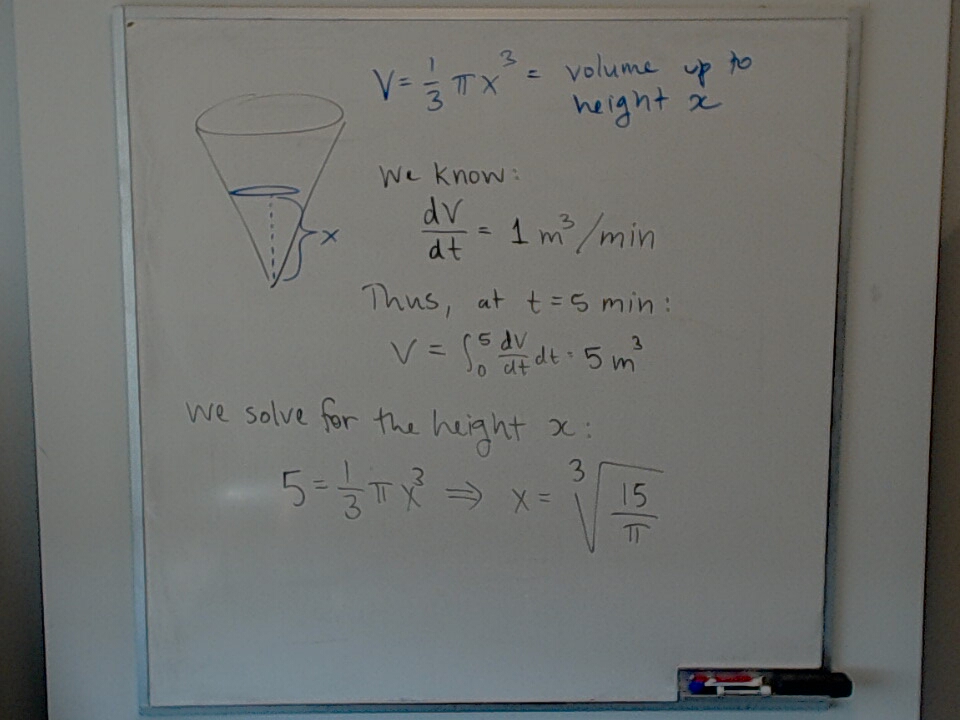 V = 1/3 πx³ = volume up to
height x
x
We know:
dV/dt = 1 m³/min
Thus, at t = 5 min:
V = ∫₀⁵ dV/dt dt = 5 m³
We solve for the height x:
5 = 1/3 πx³ ⇒ x = ∛(15/π)